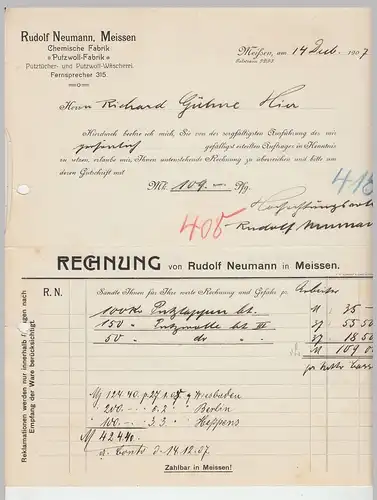 Rudolf Neumann, Meissen
Chemische Fabrik
Putzwoll-Fabrik
Putztücher- und Putzwoll-Wäscherei.
Fernsprecher 315.
Meissen, am 14 Dez. 1907
Herrn Richard Gühne Hier
Hierdurch beehre ich mich, Sie von der sorgfältigsten Ausführung des mir
persönlich gefälligst erteilten Auftrages in Kenntnis
zu setzen, erlaube mir, Ihnen untenstehende Rechnung zu überreichen und bitte um
deren Gutschrift mit
Mk. 109.— Pfg.
418
Hochachtungsvoll
405
Rudolf Neumann
RECHNUNG von Rudolf Neumann in Meissen.
R. N.
Sandte Ihnen für Ihre werte Rechnung und Gefahr pr. Arbeiter
100 Ko Putzlappen M 35 —
150 " Putzwolle III 55 50
50 do 18 50
M 109 0
M 124.40 Wiesbaden
200.— Berlin
100.— 3.3 Heppens
M 424.40
a Conto d. 14.12.07
Zahlbar in Meissen!
Reklamationen werden nur innerhalb Tagen nach
Empfang der Ware berücksichtigt.